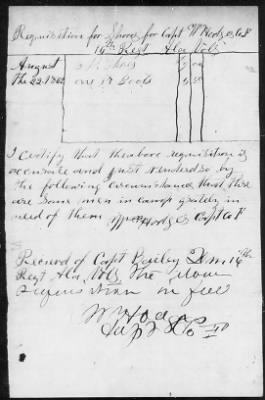 Requisition for Shoes for Capt W Hodges Co F
14th Regt Ala Vols
August
The 22 1862 one Pr Boots
I certify that the above requisition is
accurate and just rendered so by
the following circumstance that there
are some men in camp greatly in
need of them Wm Hodges Capt Co F
Received of Capt Bailey Q.M. 14th
Regt Ala Vols the above
in full
W Hodges
Capt Co F